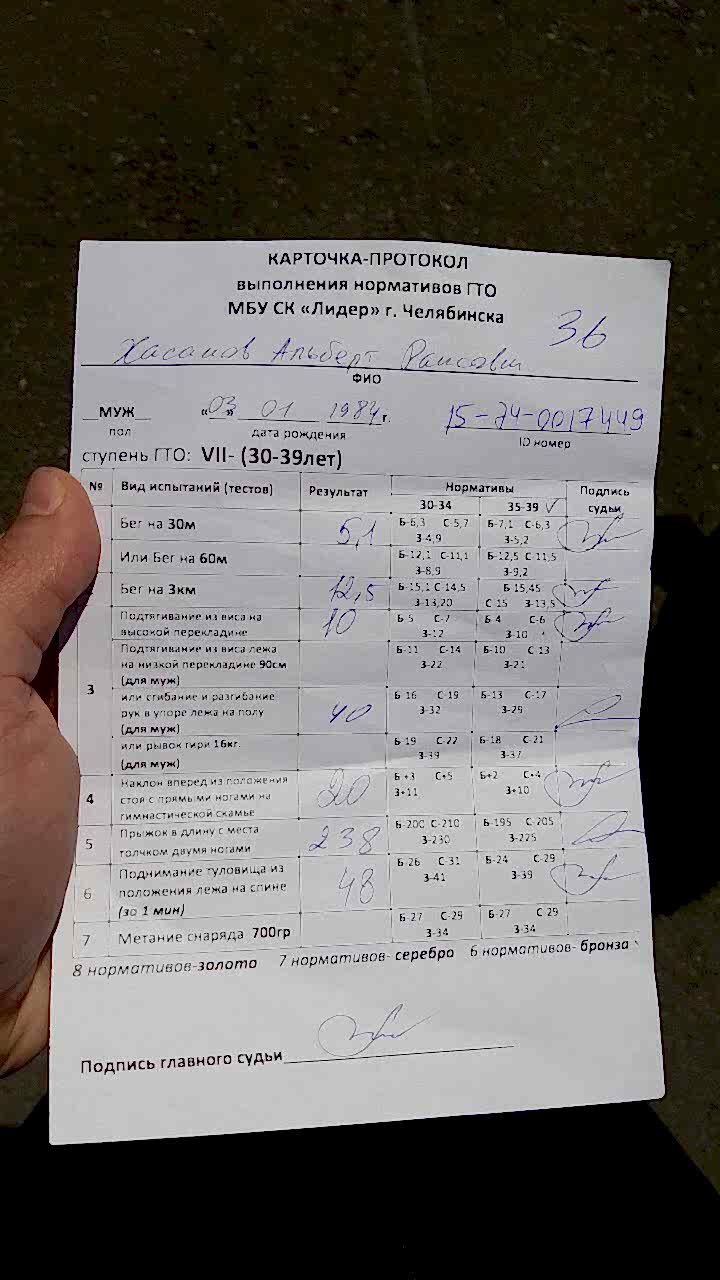 КАРТОЧКА-ПРОТОКОЛ
выполнения нормативов ГТО
МБУ СК «Лидер» г. Челябинска
36
Хасанов Альберт Раисович
ФИО
МУЖ «03» 01 1984г. 15-74-0017449
пол дата рождения ID номер
ступень ГТО: VII- (30-39лет)
№ Вид испытаний (тестов) Результат Нормативы Подпись судьи
30-34 35-39 ✓
Бег на 30м 5,1 Б-6,3 С-5,7 Б-7,1 С-6,3
З-4,9 З-5,2
Или Бег на 60м Б-12,1 С-11,1 Б-12,5 С-11,5
З-8,9 З-9,2
Бег на 3км 12,5 Б-15,1 С-14,5 Б 15,45
З-13,20 С-15 З-13,5
Подтягивание из виса на 10 Б-5 С-7 Б-4 С-6
высокой перекладине З-12 З-10
Подтягивание из виса лежа Б-11 С-14 Б-10 С-13
на низкой перекладине 90см З-22 З-21
(для муж)
3
или сгибание и разгибание 40 Б-16 С-19 Б-13 С-17
рук в упоре лежа на полу З-32 З-29
(для муж)
или рывок гири 16кг. Б-19 С-22 Б-18 С-21
(для муж) З-39 З-37
4 Наклон вперед из положения 20 Б+3 С+5 Б+2 С+4
стоя с прямыми ногами на З+11 З+10
гимнастической скамье
5 Прыжок в длину с места 238 Б-200 С-210 Б-195 С-205
толчком двумя ногами З-230 З-225
6 Поднимание туловища из 48 Б-26 С-31 Б-24 С-29
положения лежа на спине З-41 З-39
(за 1 мин)
7 Метание снаряда 700гр Б-27 С-29 Б-27 С-29
З-34 З-34
8 нормативов-золото 7 нормативов- серебро 6 нормативов- бронза
Подпись главного судьи